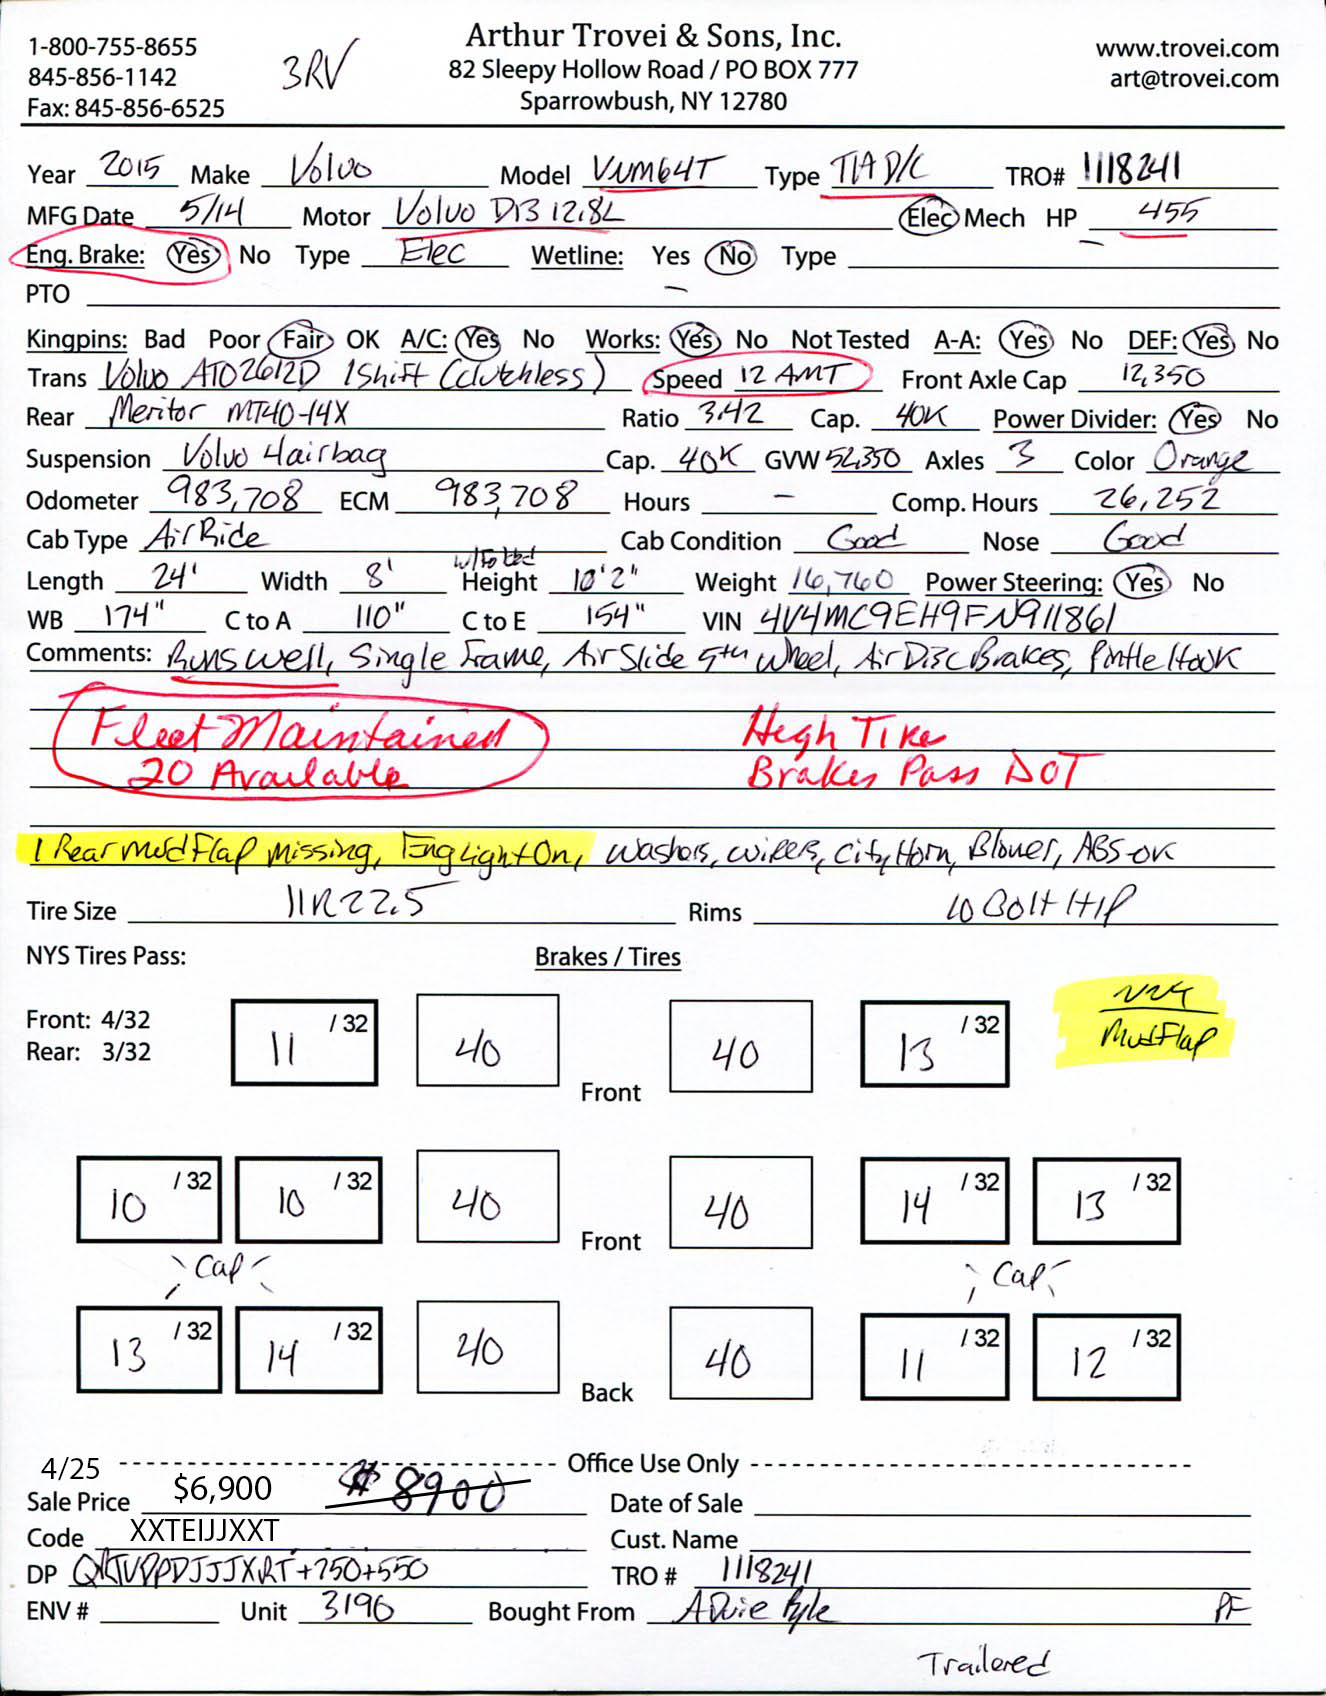 1-800-755-8655
845-856-1142
Fax: 845-856-6525
3RV
Arthur Trovei & Sons, Inc.
82 Sleepy Hollow Road / PO BOX 777
Sparrowbush, NY 12780
www.trovei.com
art@trovei.com
Year 2015 Make Volvo Model VNM64T Type T/A D/C TRO# 1118241
MFG Date 5/14 Motor Volvo D13 12.8L Elec Mech HP 455
Eng. Brake: Yes No Type Elec Wetline: Yes No Type
PTO —
Kingpins: Bad Poor Fair OK A/C: Yes No Works: Yes No Not Tested A-A: Yes No DEF: Yes No
Trans Volvo ATO2612D IShift (Clutchless) Speed 12 AMT Front Axle Cap 12,350
Rear Meritor MT40-14X Ratio 3.42 Cap. 40K Power Divider: Yes No
Suspension Volvo 4airbag Cap. 40K GVW 52,350 Axles 3 Color Orange
Odometer 983,708 ECM 983,708 Hours — Comp. Hours 26,252
Cab Type AirRide Cab Condition Good Nose Good
Length 24' Width 8' Height 10'2" Weight 16,760 Power Steering: Yes No
WB 174" C to A 110" C to E 154" VIN 4V4MC9EH9FN911861
Comments: Runs well, Single Frame, Air Slide 5th Wheel, Air Disc Brakes, Pintle Hook
Fleet Maintained
20 Available
High Tire
Brakes Pass DOT
1 Rear Mud Flap missing, Eng Light On, Washers, Wipers, City Horn, Blower, ABS-OK
Tire Size 11R22.5 Rims 10 Bolt H/P
NYS Tires Pass: Brakes / Tires
Front: 4/32
Rear: 3/32
11 /32 40 Front 40 13 /32
Mud Flap
10 /32 10 /32 40 Front 40 14 /32 13 /32
Cap Cap
13 /32 14 /32 40 Back 40 11 /32 12 /32
4/25 Office Use Only
Sale Price $6,900 # 8900 Date of Sale
Code XXTEIJJXXT Cust. Name
DP +750+550 TRO # 1118241
ENV # Unit 3196 Bought From PF
Trailered